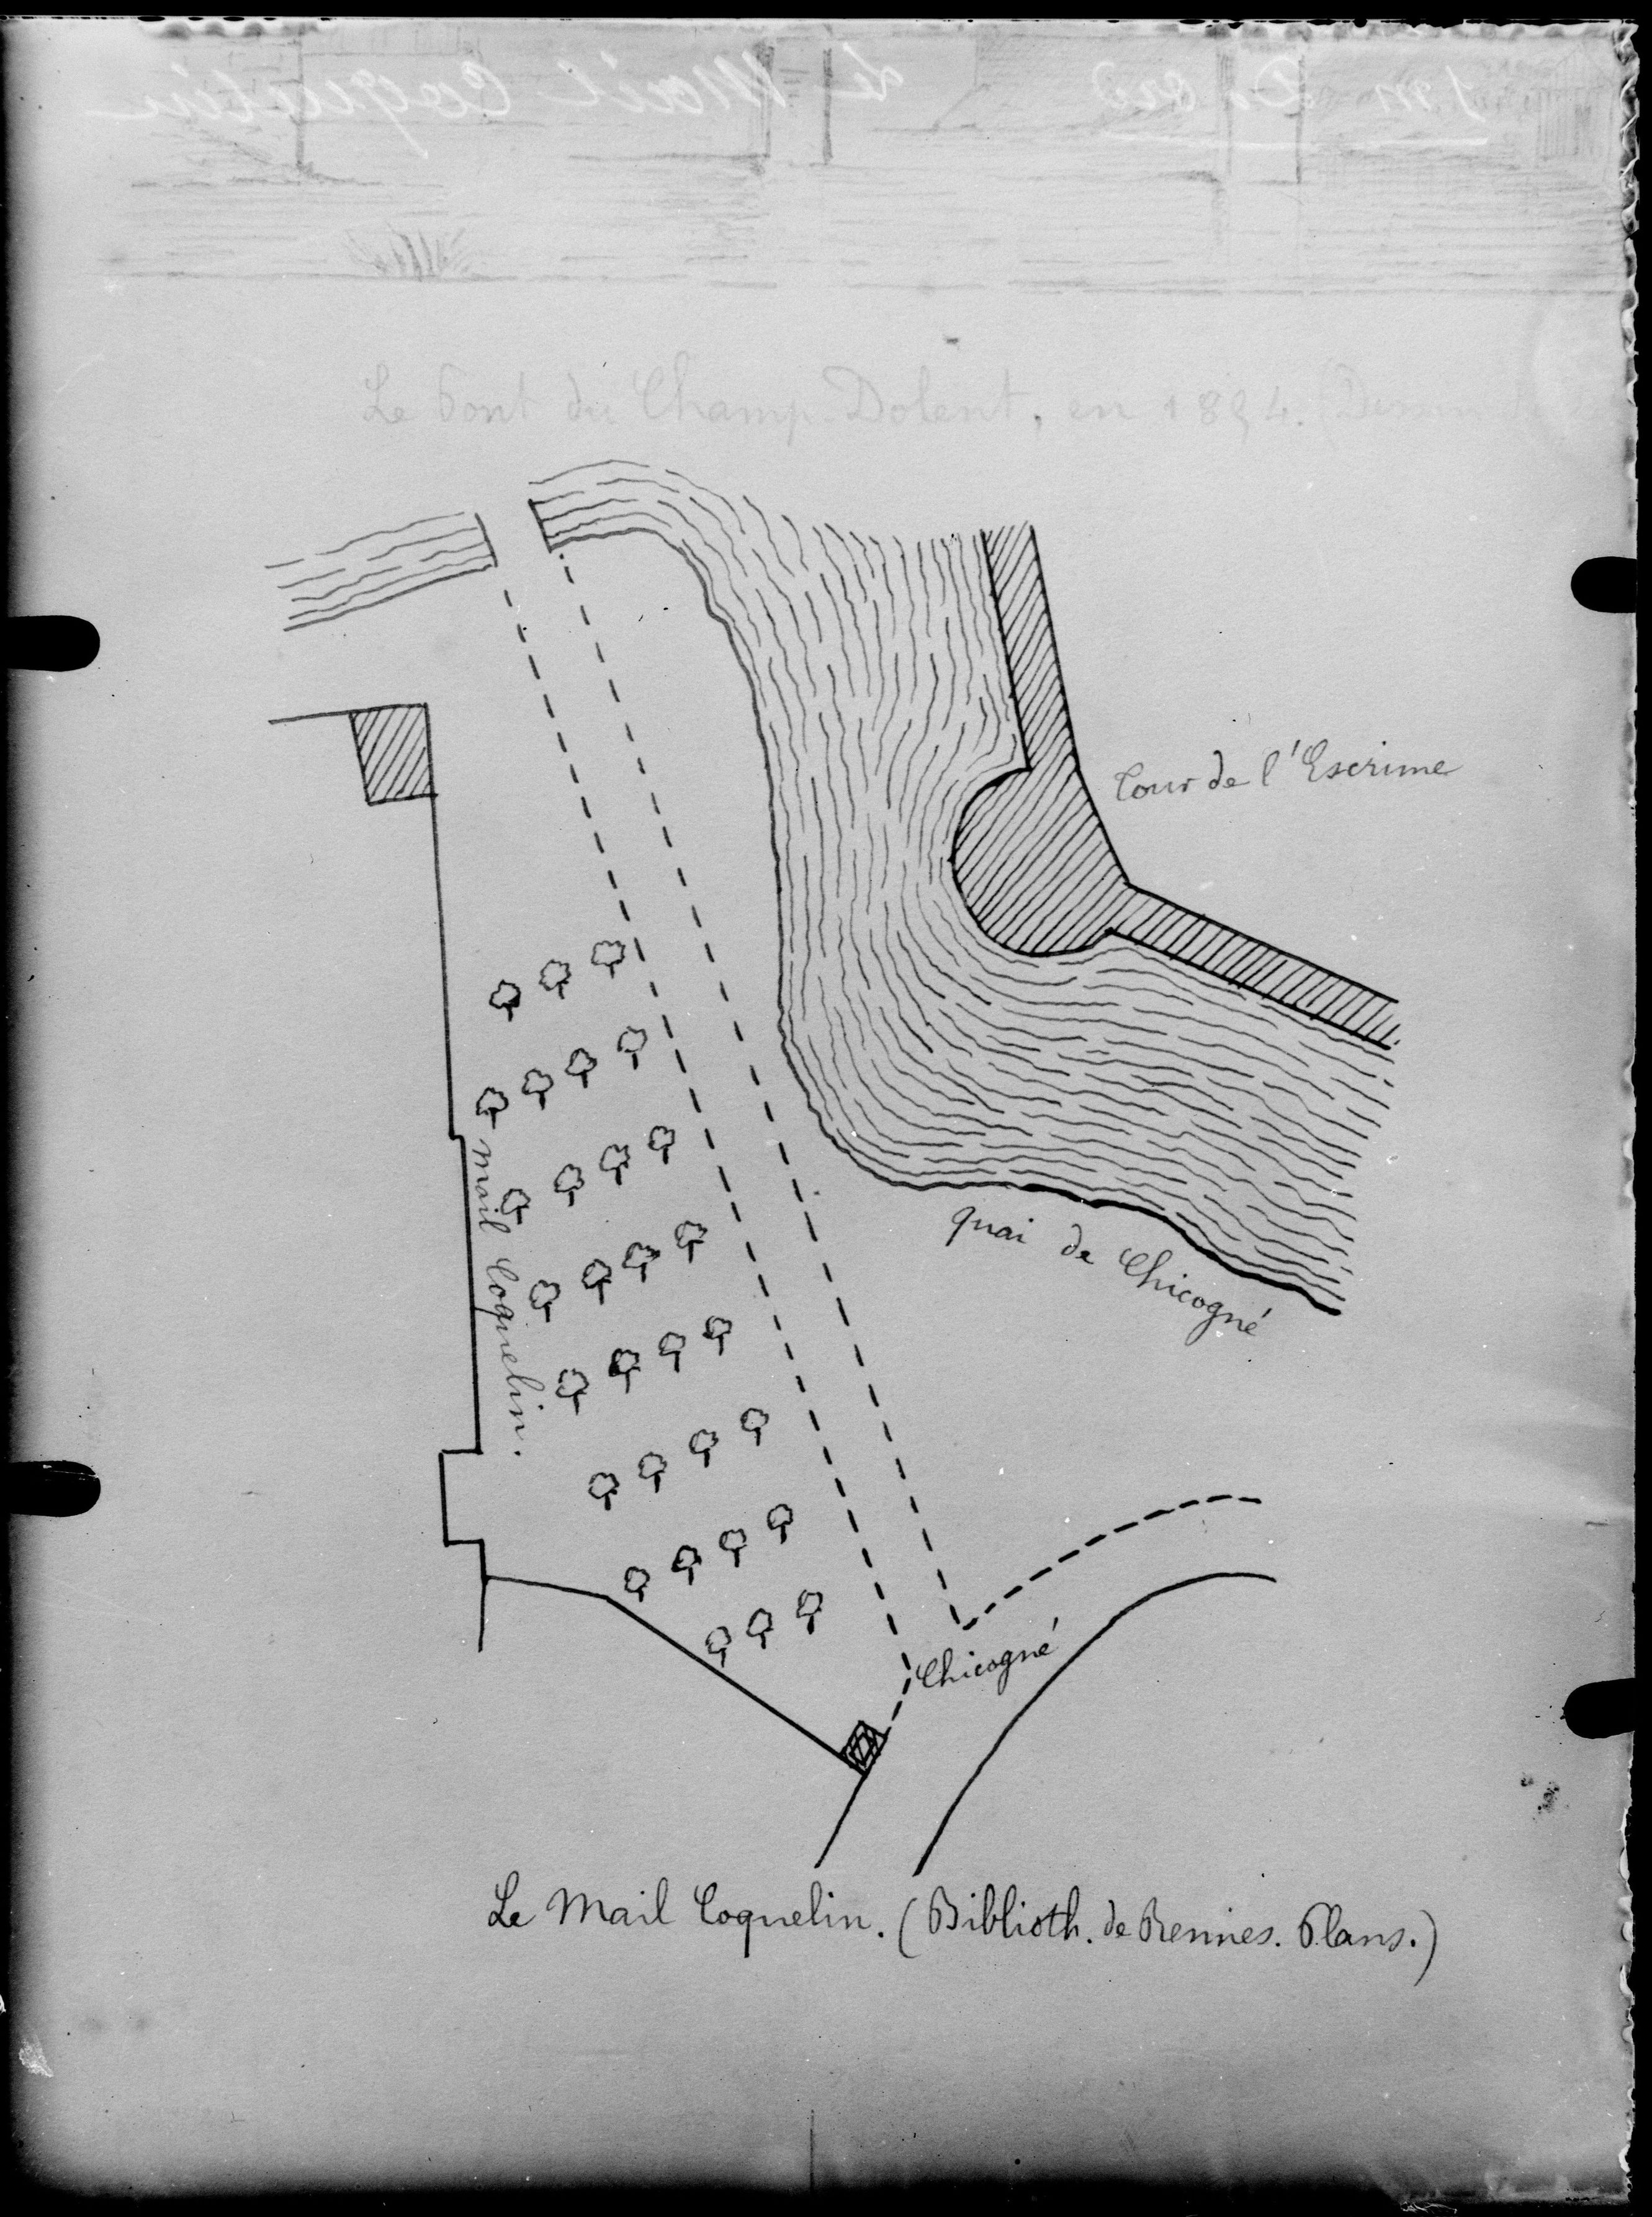 Le Mail Coquelin
Le Pont du Champ-Dolent, en 1894. (Dessin
Tour de l'Escrime
Mail Coquelin.
quai de Chicogné
Chicogné
Le Mail Coquelin. (Biblioth. de Rennes. Plans.)